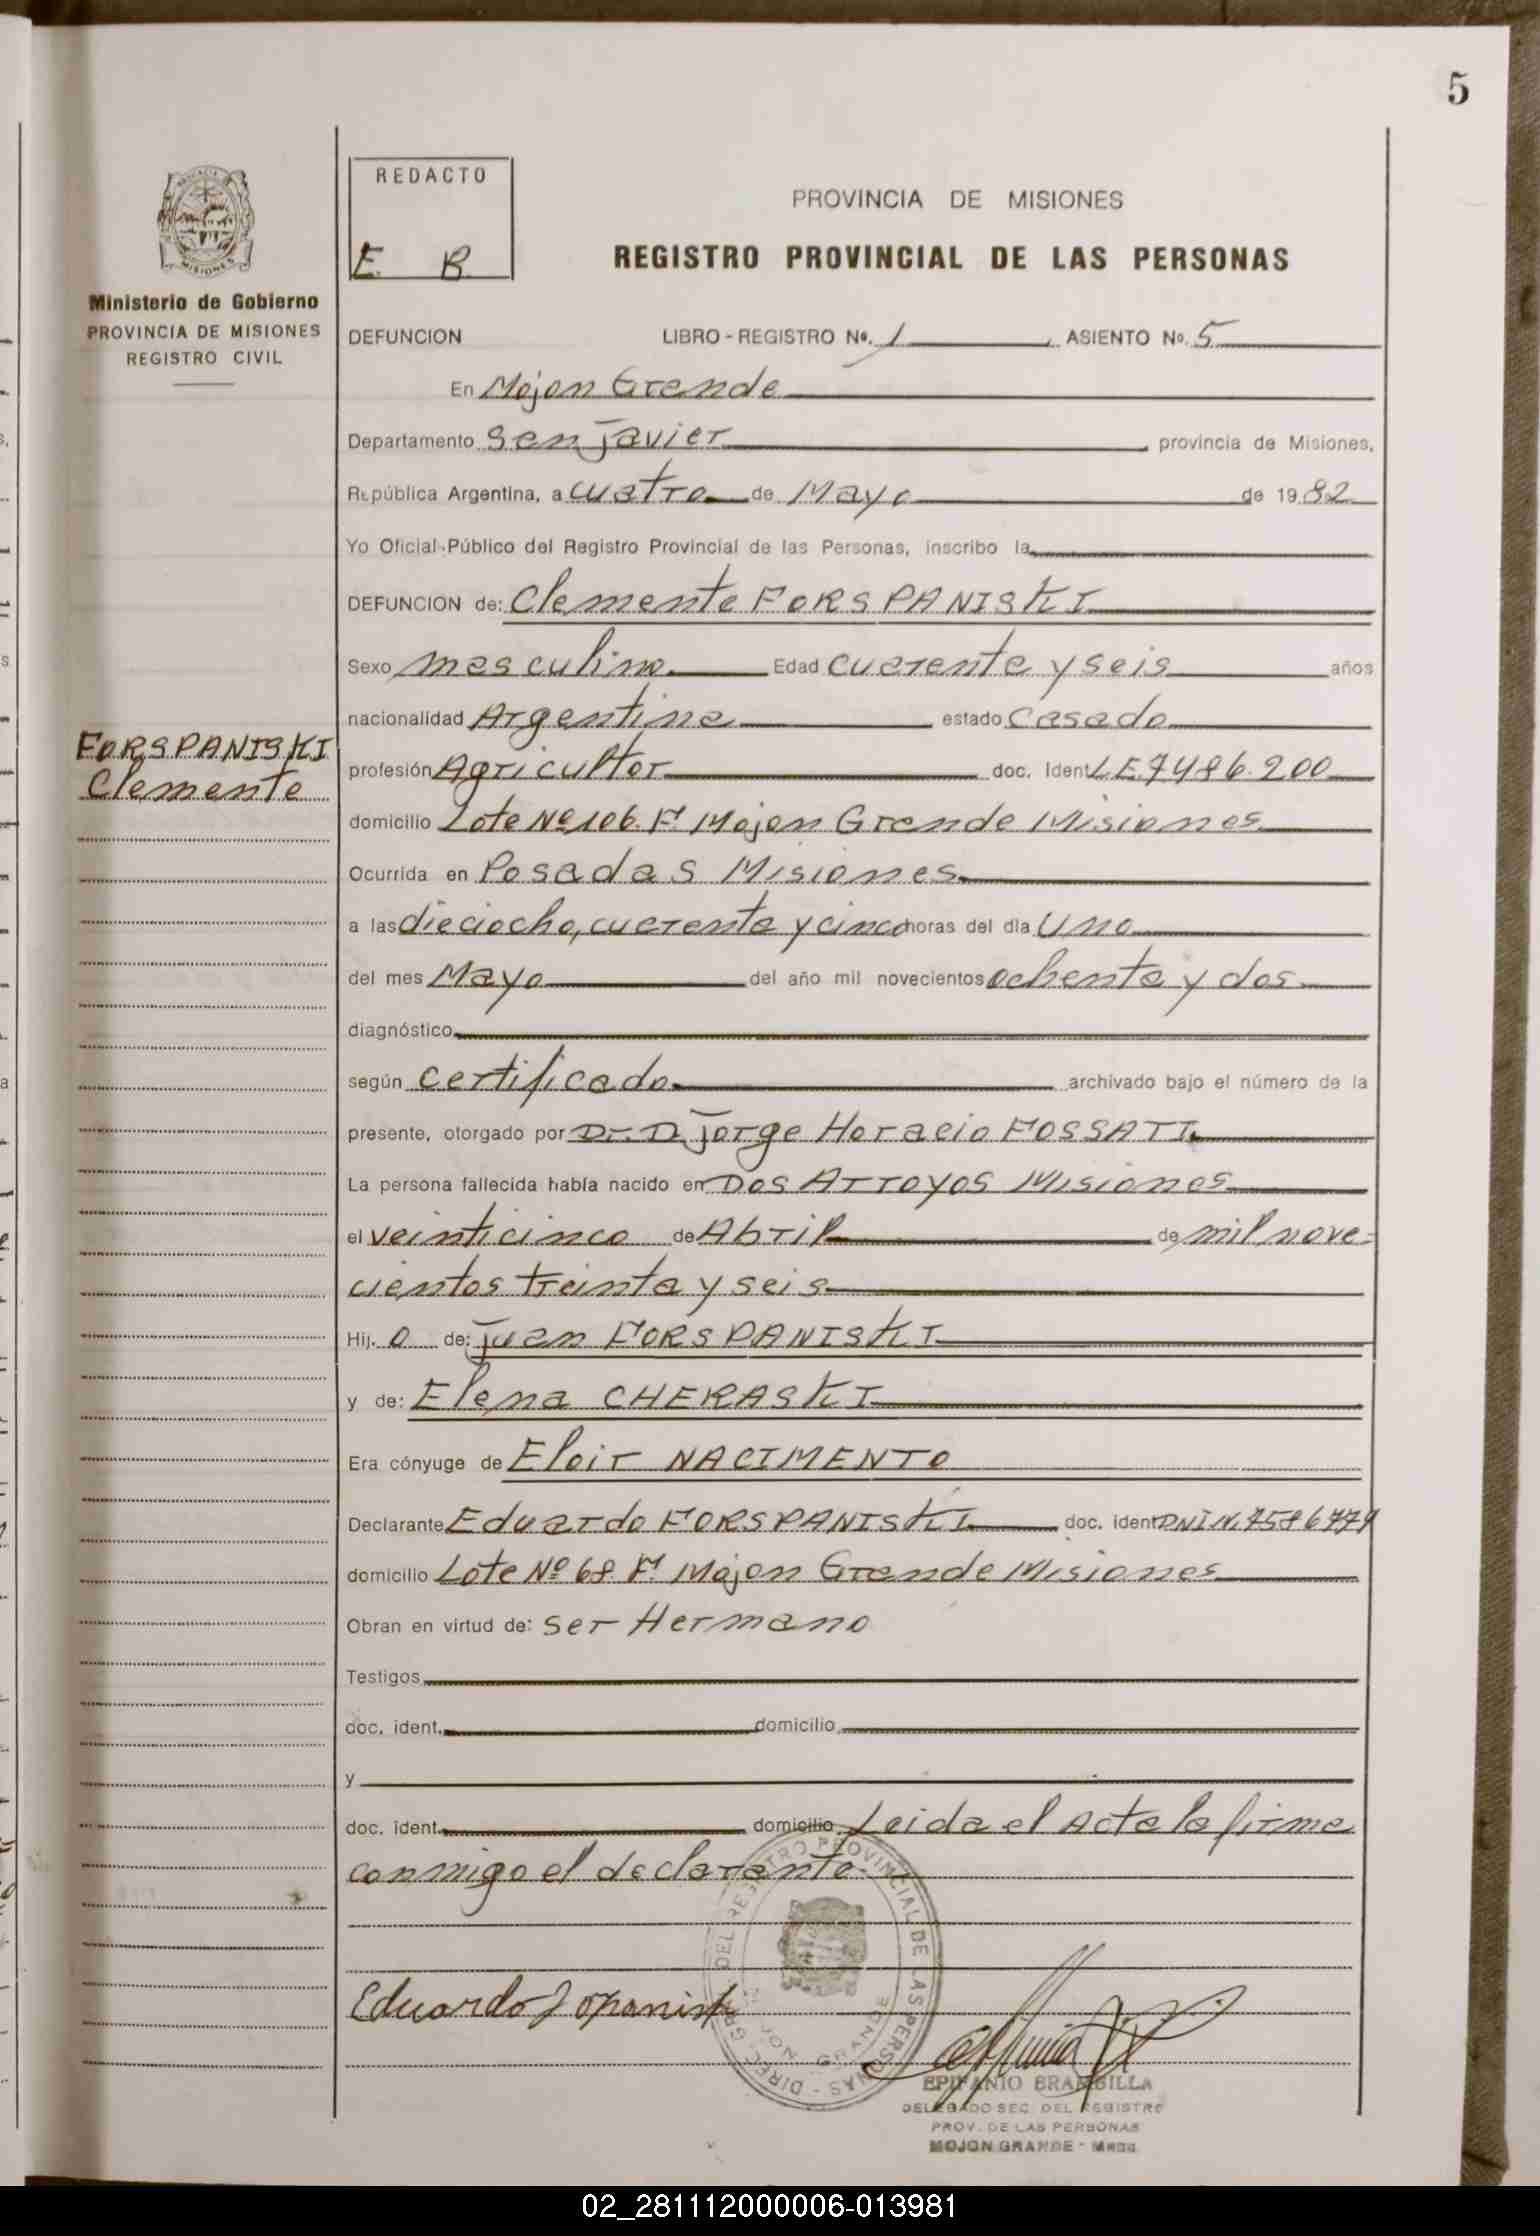 5
REDACTO
E. B.
PROVINCIA DE MISIONES
REGISTRO PROVINCIAL DE LAS PERSONAS
MISIONES
Ministerio de Gobierno
PROVINCIA DE MISIONES
REGISTRO CIVIL
DEFUNCION LIBRO - REGISTRO No. 1 ASIENTO No. 5
En Mojon Grande
Departamento San Javier, provincia de Misiones,
República Argentina, a cuatro de Mayo de 1982
Yo Oficial Público del Registro Provincial de las Personas, inscribo la
DEFUNCION de: Clemente FORSPANISKI
Sexo masculino Edad cuarenta y seis años
nacionalidad Argentina estado Casado
FORSPANISKI
Clemente
profesión Agricultor doc. Ident L.E. 7486.200
domicilio Lote Nº 106. F. Mojon Grande Misiones
Ocurrida en Posadas Misiones
a las dieciocho, cuarenta y cinco horas del día Uno
del mes Mayo del año mil novecientos ochenta y dos
diagnóstico
según certificado archivado bajo el número de la
presente, otorgado por Dr. D. Jorge Horacio FOSSATI
La persona fallecida había nacido en Dos Arroyos Misiones
el veinticinco de Abril de mil nove=
cientos treinta y seis
Hij. o de: Juan FORSPANISKI
y de: Elena CHERASKI
Era cónyuge de Eloir NACIMENTO
Declarante Eduardo FORSPANISKI doc. ident DNI N.
domicilio Lote Nº 68 F. Mojon Grande Misiones
Obran en virtud de: ser Hermano
Testigos
doc. ident. domicilio
y
doc. ident. domicilio Leida el Acta la firma
conmigo el declarante.
DIREC. GRAL. DEL REGISTRO PROVINCIAL DE LAS PERSONAS -
MOJON GRANDE
Eduardo
EPIFANIO BRAMBILLA
DELEGADO SEC. DEL REGISTRO
PROV. DE LAS PERSONAS
MOJON GRANDE - Mnes.
02_281112000006-013981